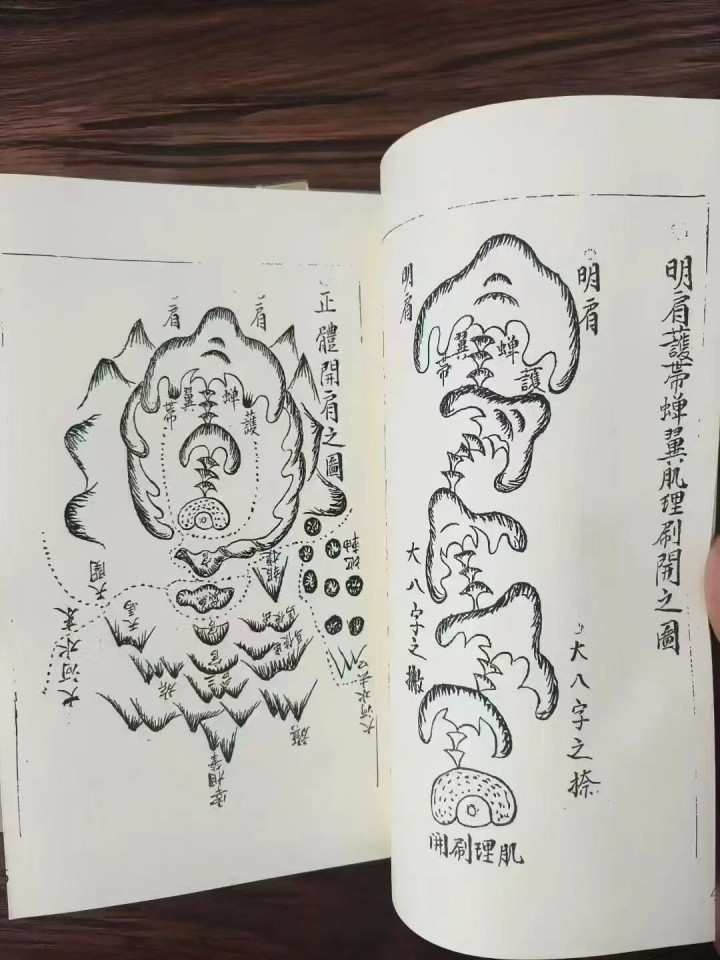 明肩護帶蟬翼肌理刷開之圖
明肩
明肩
護
蟬
翼
帶
大八字之捺
大八字之撇
肌理刷開
正體開肩之圖
肩
肩
護
蟬
翼
帶
地軸
天關
天馬
大河水來
大河水去
旗
宰相筆